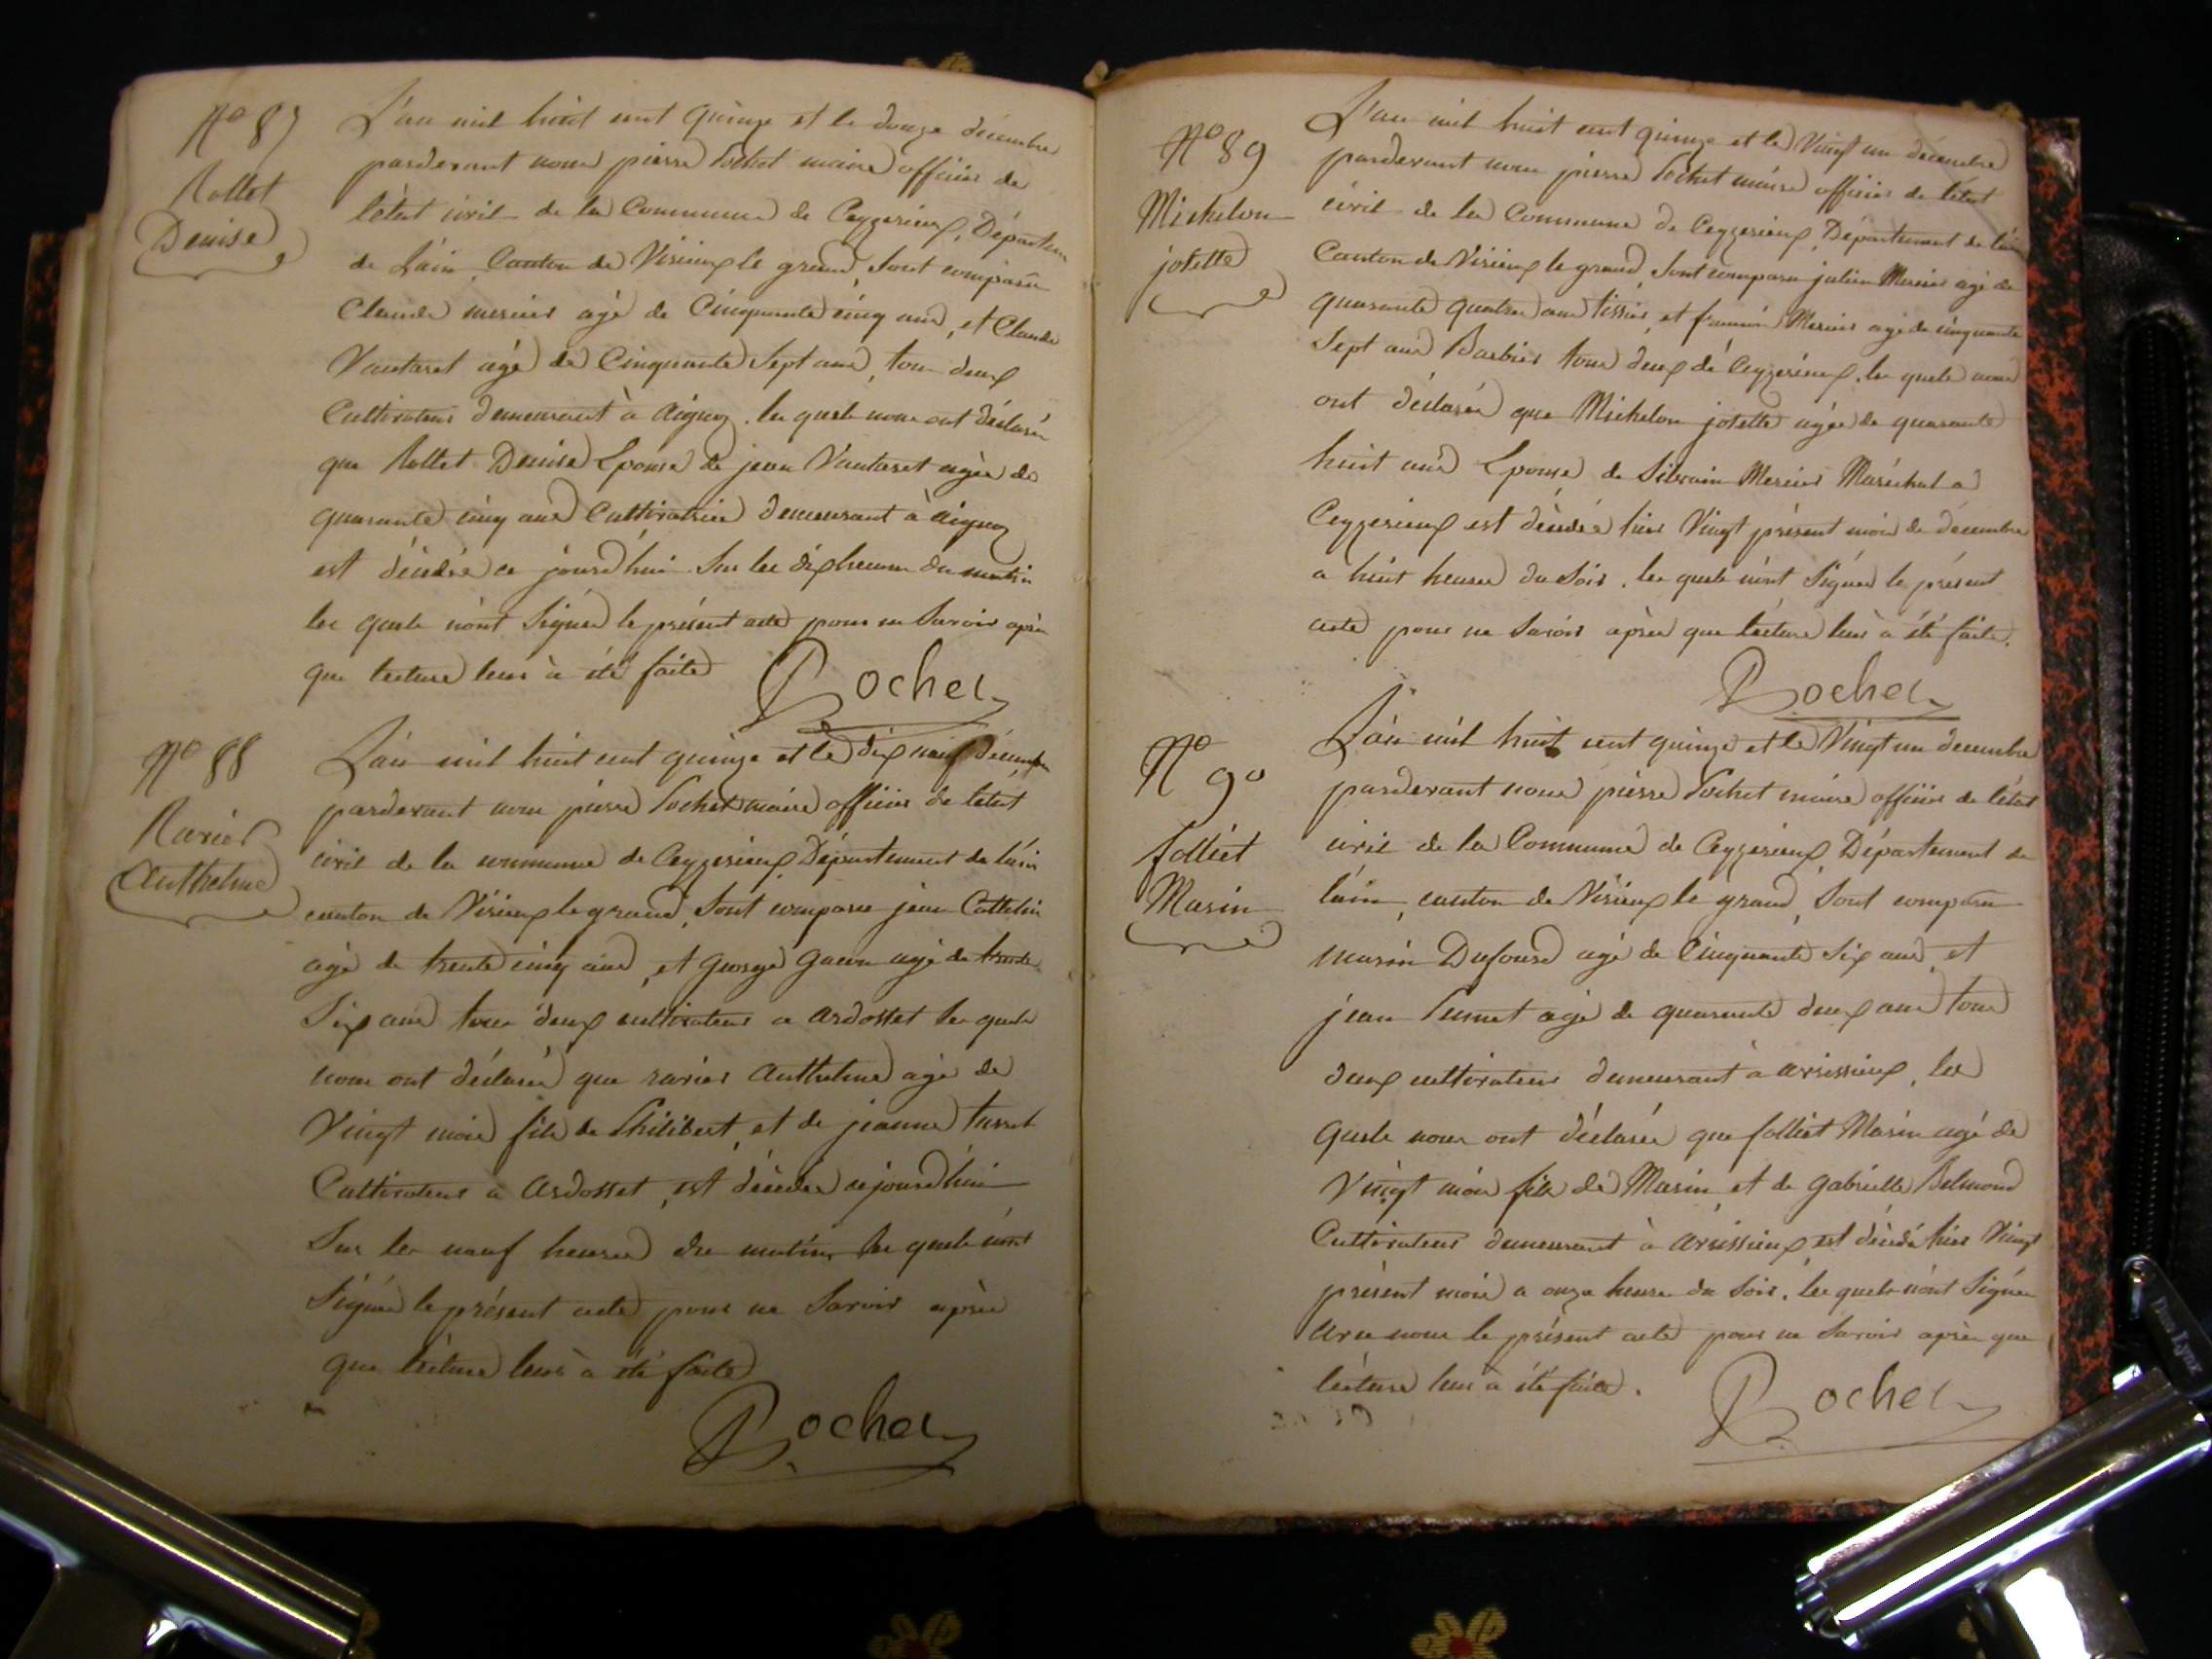 N° 87
Rollet
Denise
L'an mil huit cent quinze et le douze décembre
pardevant nous pierre Pochet maire officier de
létat civil de la Commune de Ceyzerieux, Départem
de Lain Canton de Virieux le grand, Sont comparu
Claude mercier agé de Cinquante cinq ans, et Claude
Vautaret agé de Cinquante Sept ans, tous deux
Cultivateurs demeurant à Aignoz. les quels nous ont déclaré
que Rollet Denise Epouse de jean Vautaret agée de
quarante cinq ans Cultivatrice demeurant à aignoz
est décédée ce jourd'hui Sur les dix heures du matin
les quels n'ont Signés le présent acte pour ne Savoir après
que lecture leur à été faite
Pochet
N° 88
Ravier
Anthelme
L'an mil huit cent quinze et le dix neuf décembre
pardevant nous pierre Pochet maire officier de létat
civil de la commune de Ceyzerieux, Département de lain
canton de Virieux le grand, Sont comparu jean Cattelin
agé de trente cinq ans, et George agé de trente
Six ans tous deux cultivateurs a ardosset les quels
nous ont déclaré que ravier Anthelme agé de
Vingt mois fils de Philibert, et de jeanne
Cultivateurs a Ardosset, est décédé cejourd'hui
Sur les neuf heures du matin, les quels n'ont
Signés le présent acte pour ne Savoir après
que lecture leur à été faite
Pochet
N° 89
Michelon
josette
L'an mil huit cent quinze et le Vingt un décembre
pardevant nous pierre Pochet maire officier de létat
civil de la Commune de Ceyzerieux, Département de lain
Canton de Virieux le grand, Sont comparu julien Mercier agé de
quarante quatre ans tissier, et Mercier agé de cinquante
Sept ans Barbier tous deux de Ceyzerieux. les quels nous
ont déclaré que Michelon josette agée de quarante
huit ans Epouse de Silvain Mercier Maréchal a
Ceyzerieux est décédée hier Vingt présent mois de décembre
a huit heures du Soir. les quels n'ont Signés le présent
acte pour ne Savoir après que lecture leur à été faite.
Pochet
N° 90
folliet
Marin
L'an mil huit cent quinze et le Vingt un décembre
pardevant nous pierre Pochet maire officier de létat
civil de la Commune de Ceyzerieux, Département de
lain, canton de Virieux le grand, Sont comparu
marin Dufour agé de Cinquante Six ans, et
jean agé de quarante deux ans tous
deux cultivateurs demeurant à avrissieux, les
quels nous ont déclaré que folliet Marin agé de
Vingt mois fils de Marin et de gabrielle Belmond
Cultivateurs demeurant à avrissieux est décédé hier Vingt
présent mois a onze heures du Soir. les quels n'ont Signés
avec nous le présent acte pour ne Savoir après que
lecture leur à été faite.
Pochet